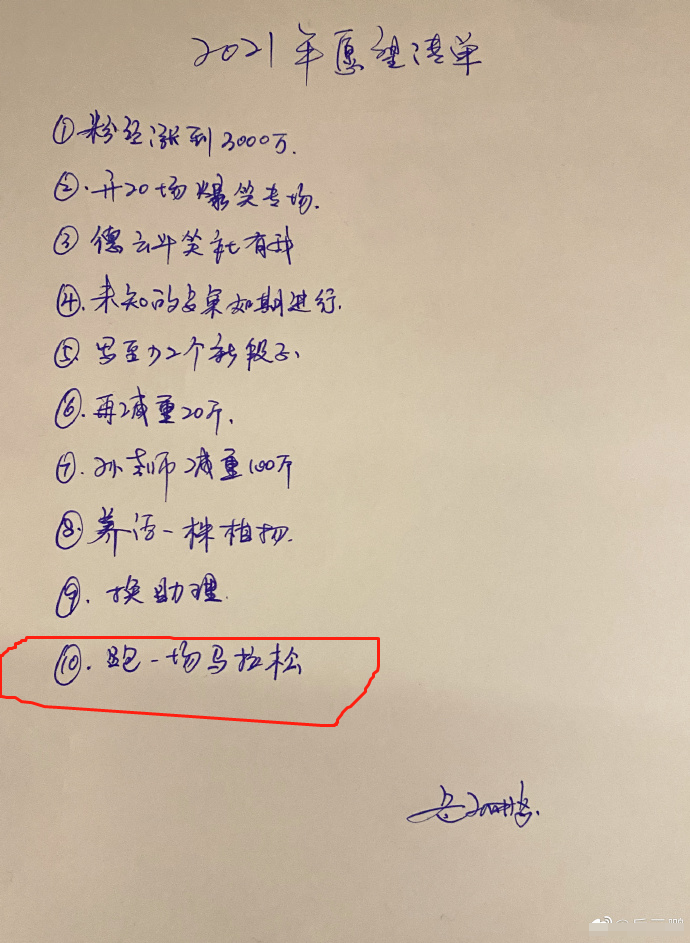 2021年愿望清单
①粉丝涨到3000万.
②.开20场爆笑专场.
③德云斗笑社有我
④.未知的安桌如期进行.
⑤.写至少2个新段子.
⑥.再减重20斤.
⑦.孙老师减重100斤
⑧.养活一株植物.
⑨.换助理.
⑩.跑一场马拉松
岳云鹏